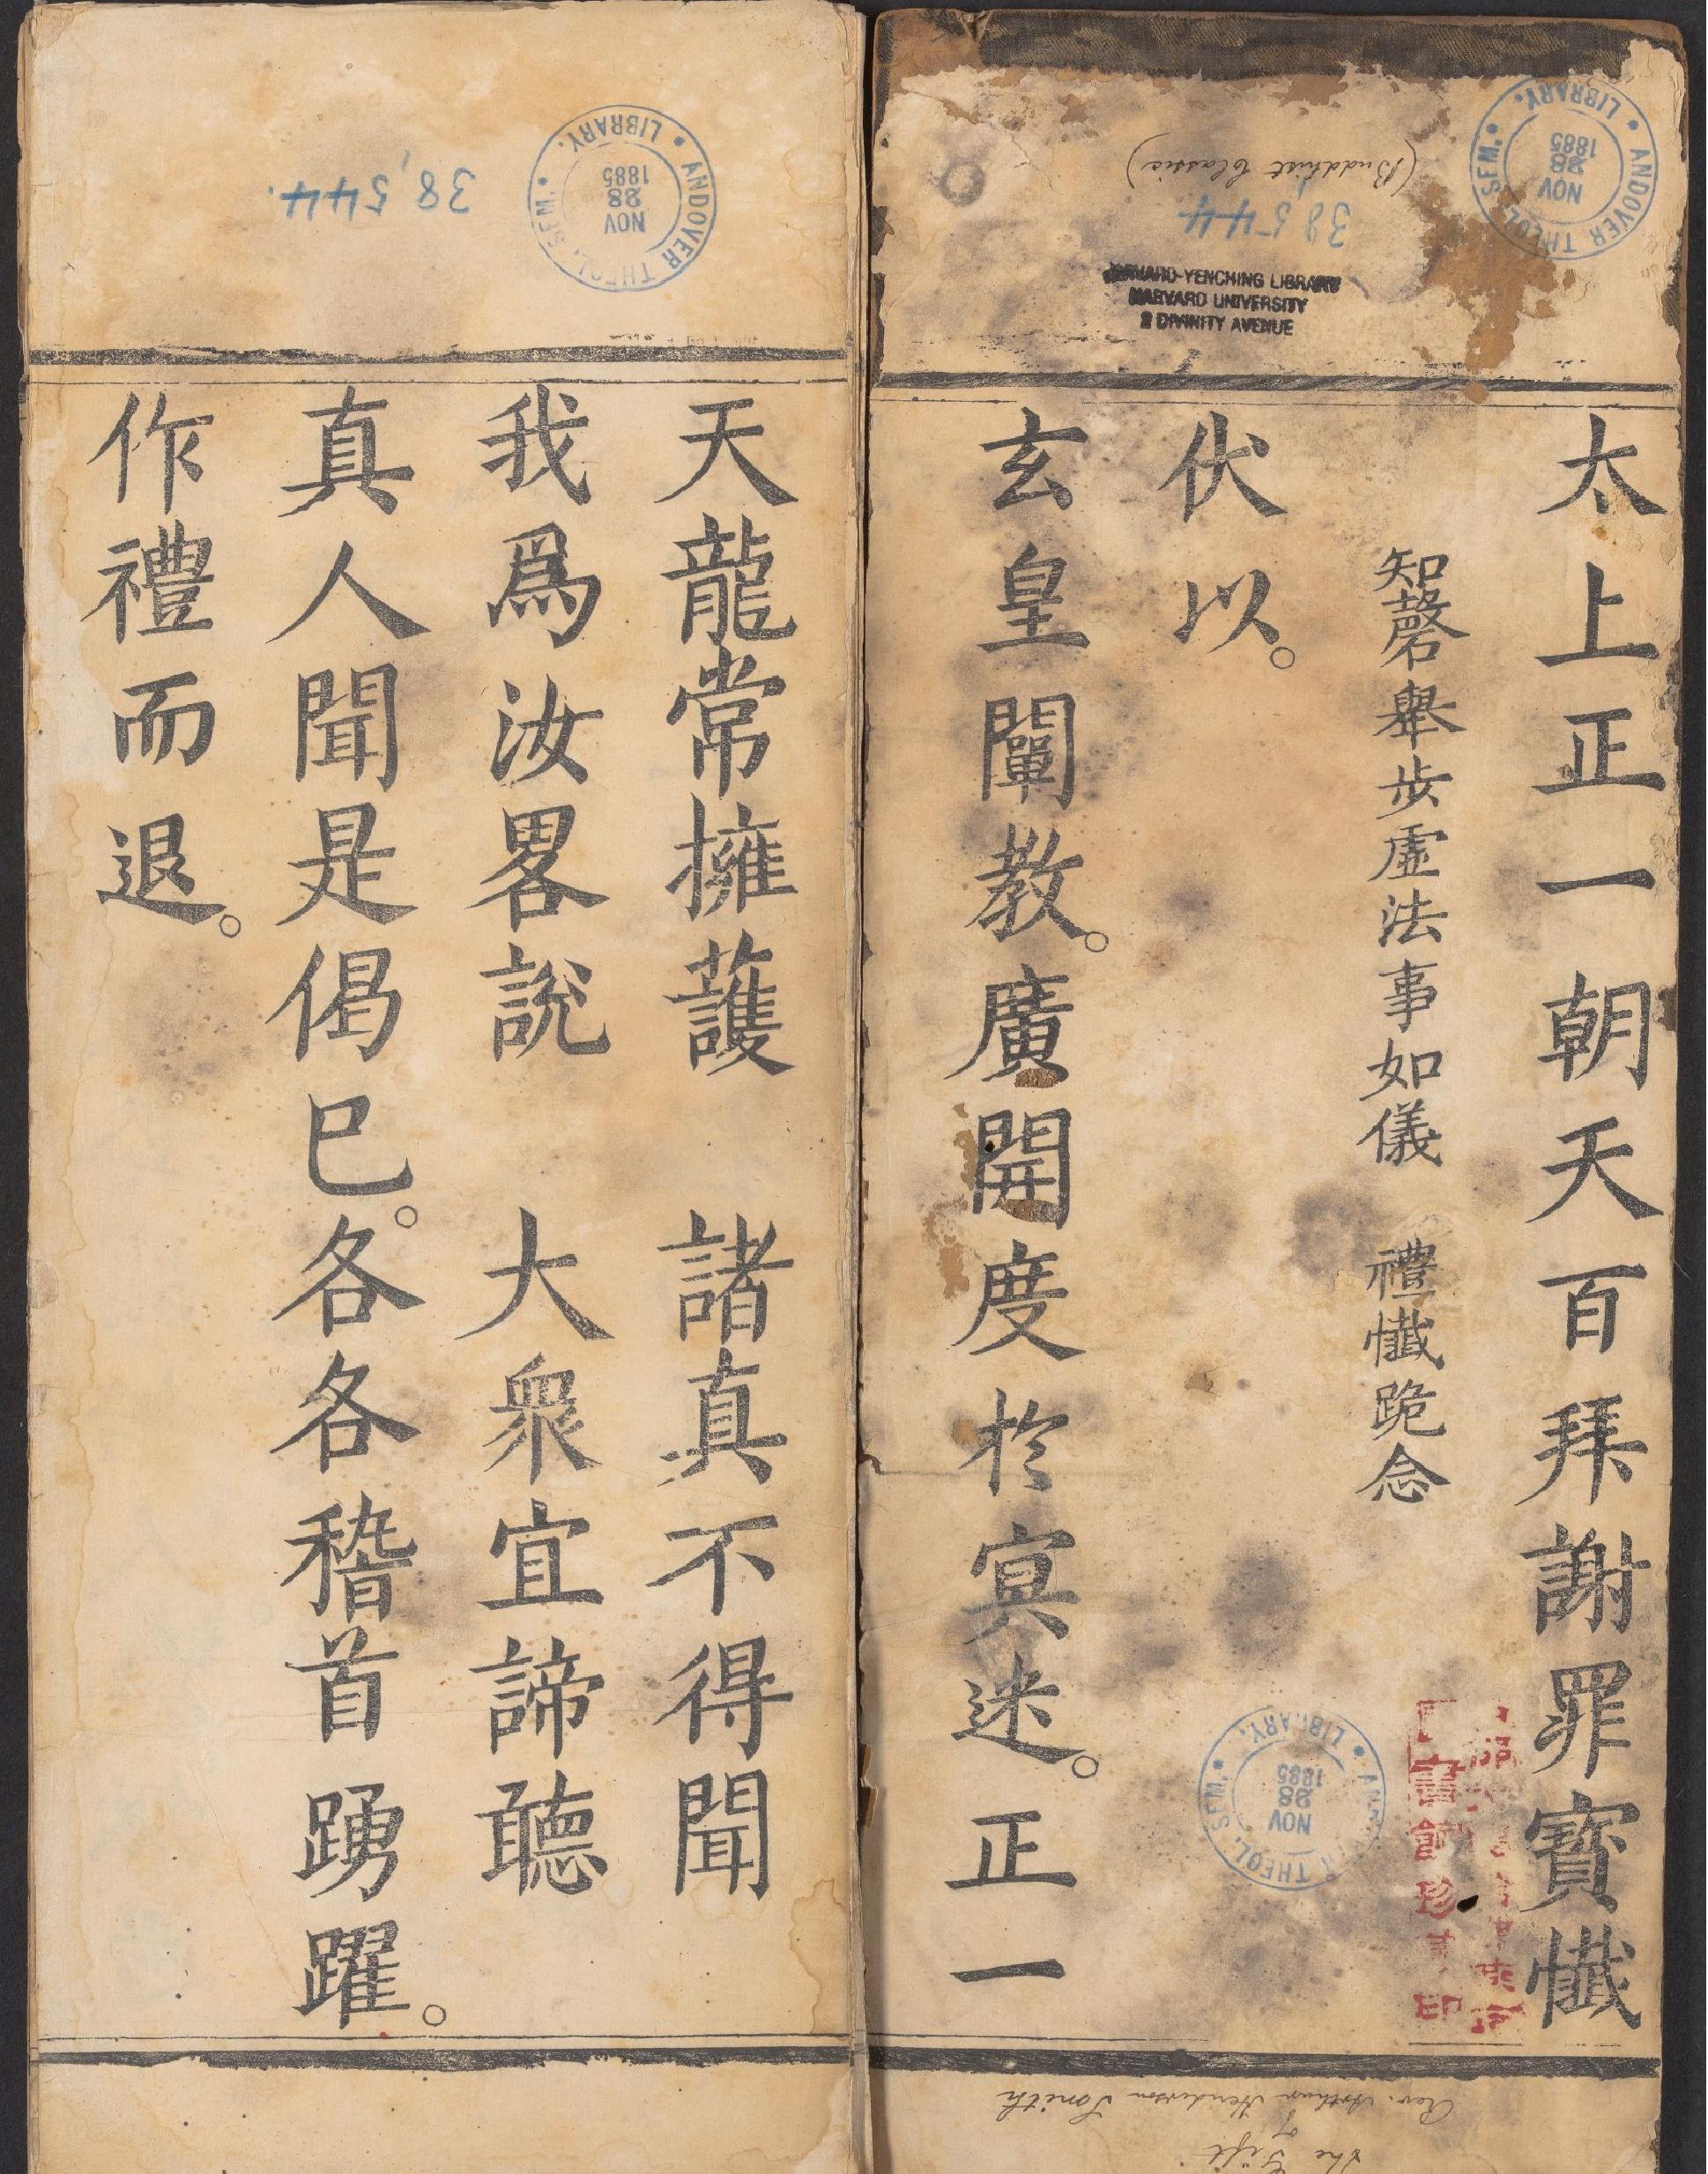 太上正一朝天百拜謝罪寶懺
知磬舉步虛法事如儀 禮懺跪念
伏以。
玄皇闡教。廣開度於冥迷。正一
天龍常擁護 諸真不得聞
我爲汝畧說 大衆宜諦聽
真人聞是偈已。各各稽首踴躍。
作禮而退。
(Buddhist Classic)
38544
ANDOVER THEOL. SEM. LIBRARY.
NOV
28
1885
HARVARD-YENCHING LIBRARY
HARVARD UNIVERSITY
2 DIVINITY AVENUE
38,544.
ANDOVER THEOL. SEM. LIBRARY.
NOV
28
1885
ANDOVER THEOL. SEM. LIBRARY.
NOV
28
1885
The Gift
of
Rev. Arthur Henderson Smith
書館珍
印